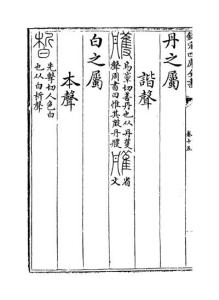 欽定四庫全書
卷十五
丹之屬
諧聲
雘烏郭切善丹也从丹蒦
聲周書曰惟其敷丹雘
省
文
白之屬
本聲
皙先擊切人色白
也从白析聲